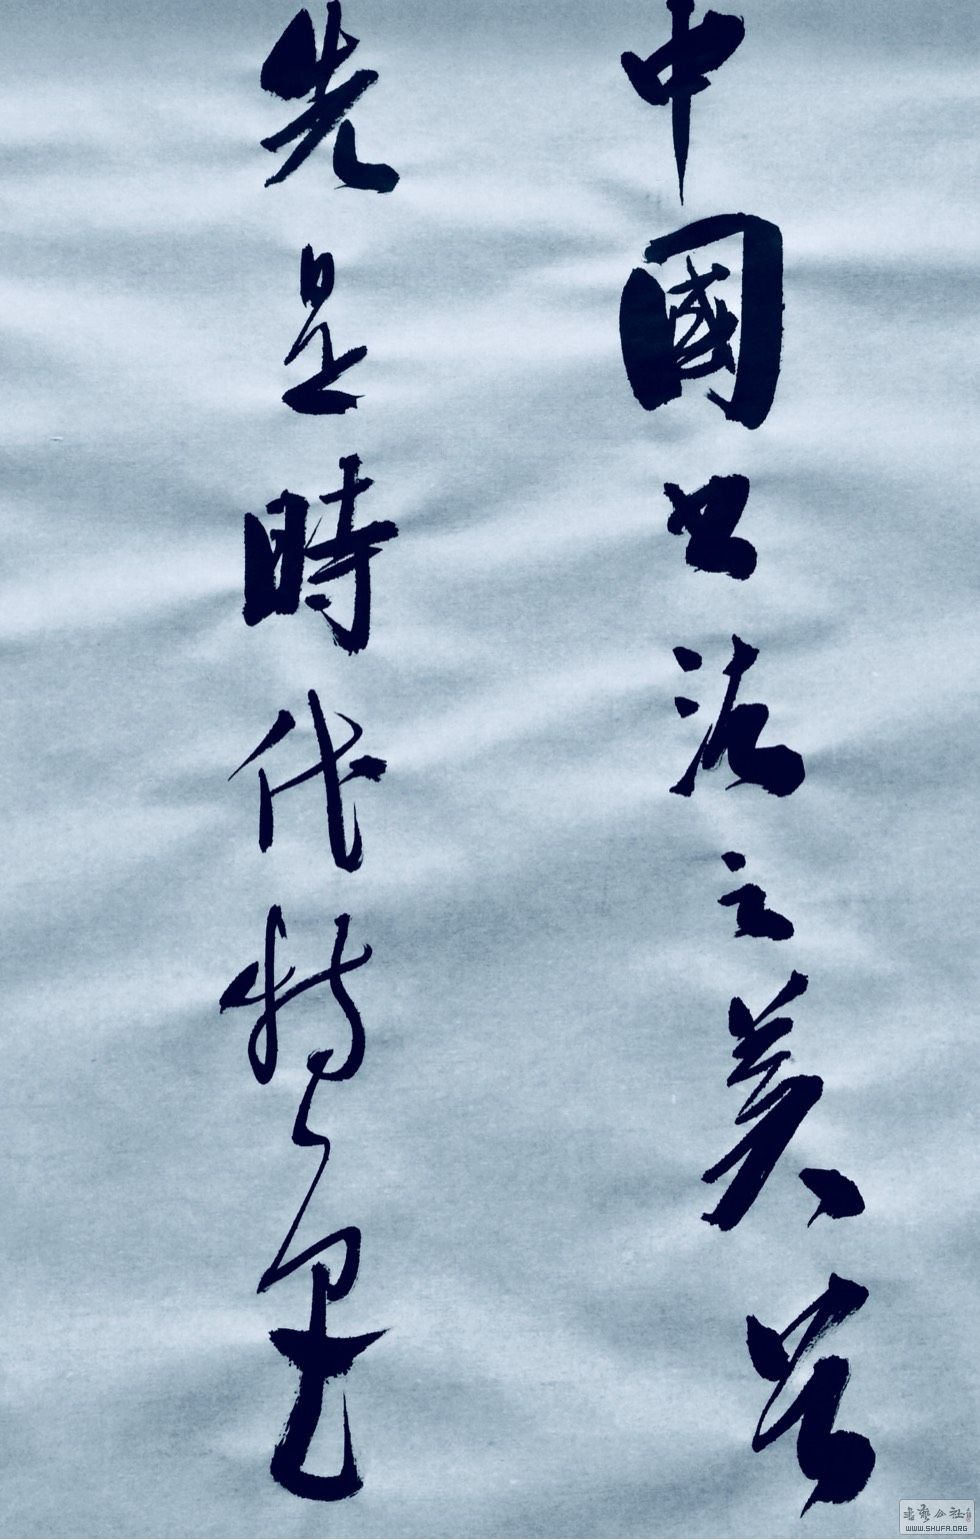 中國書法之美首
先是時代特色
書藝公社
WWW.SHUFA.ORG